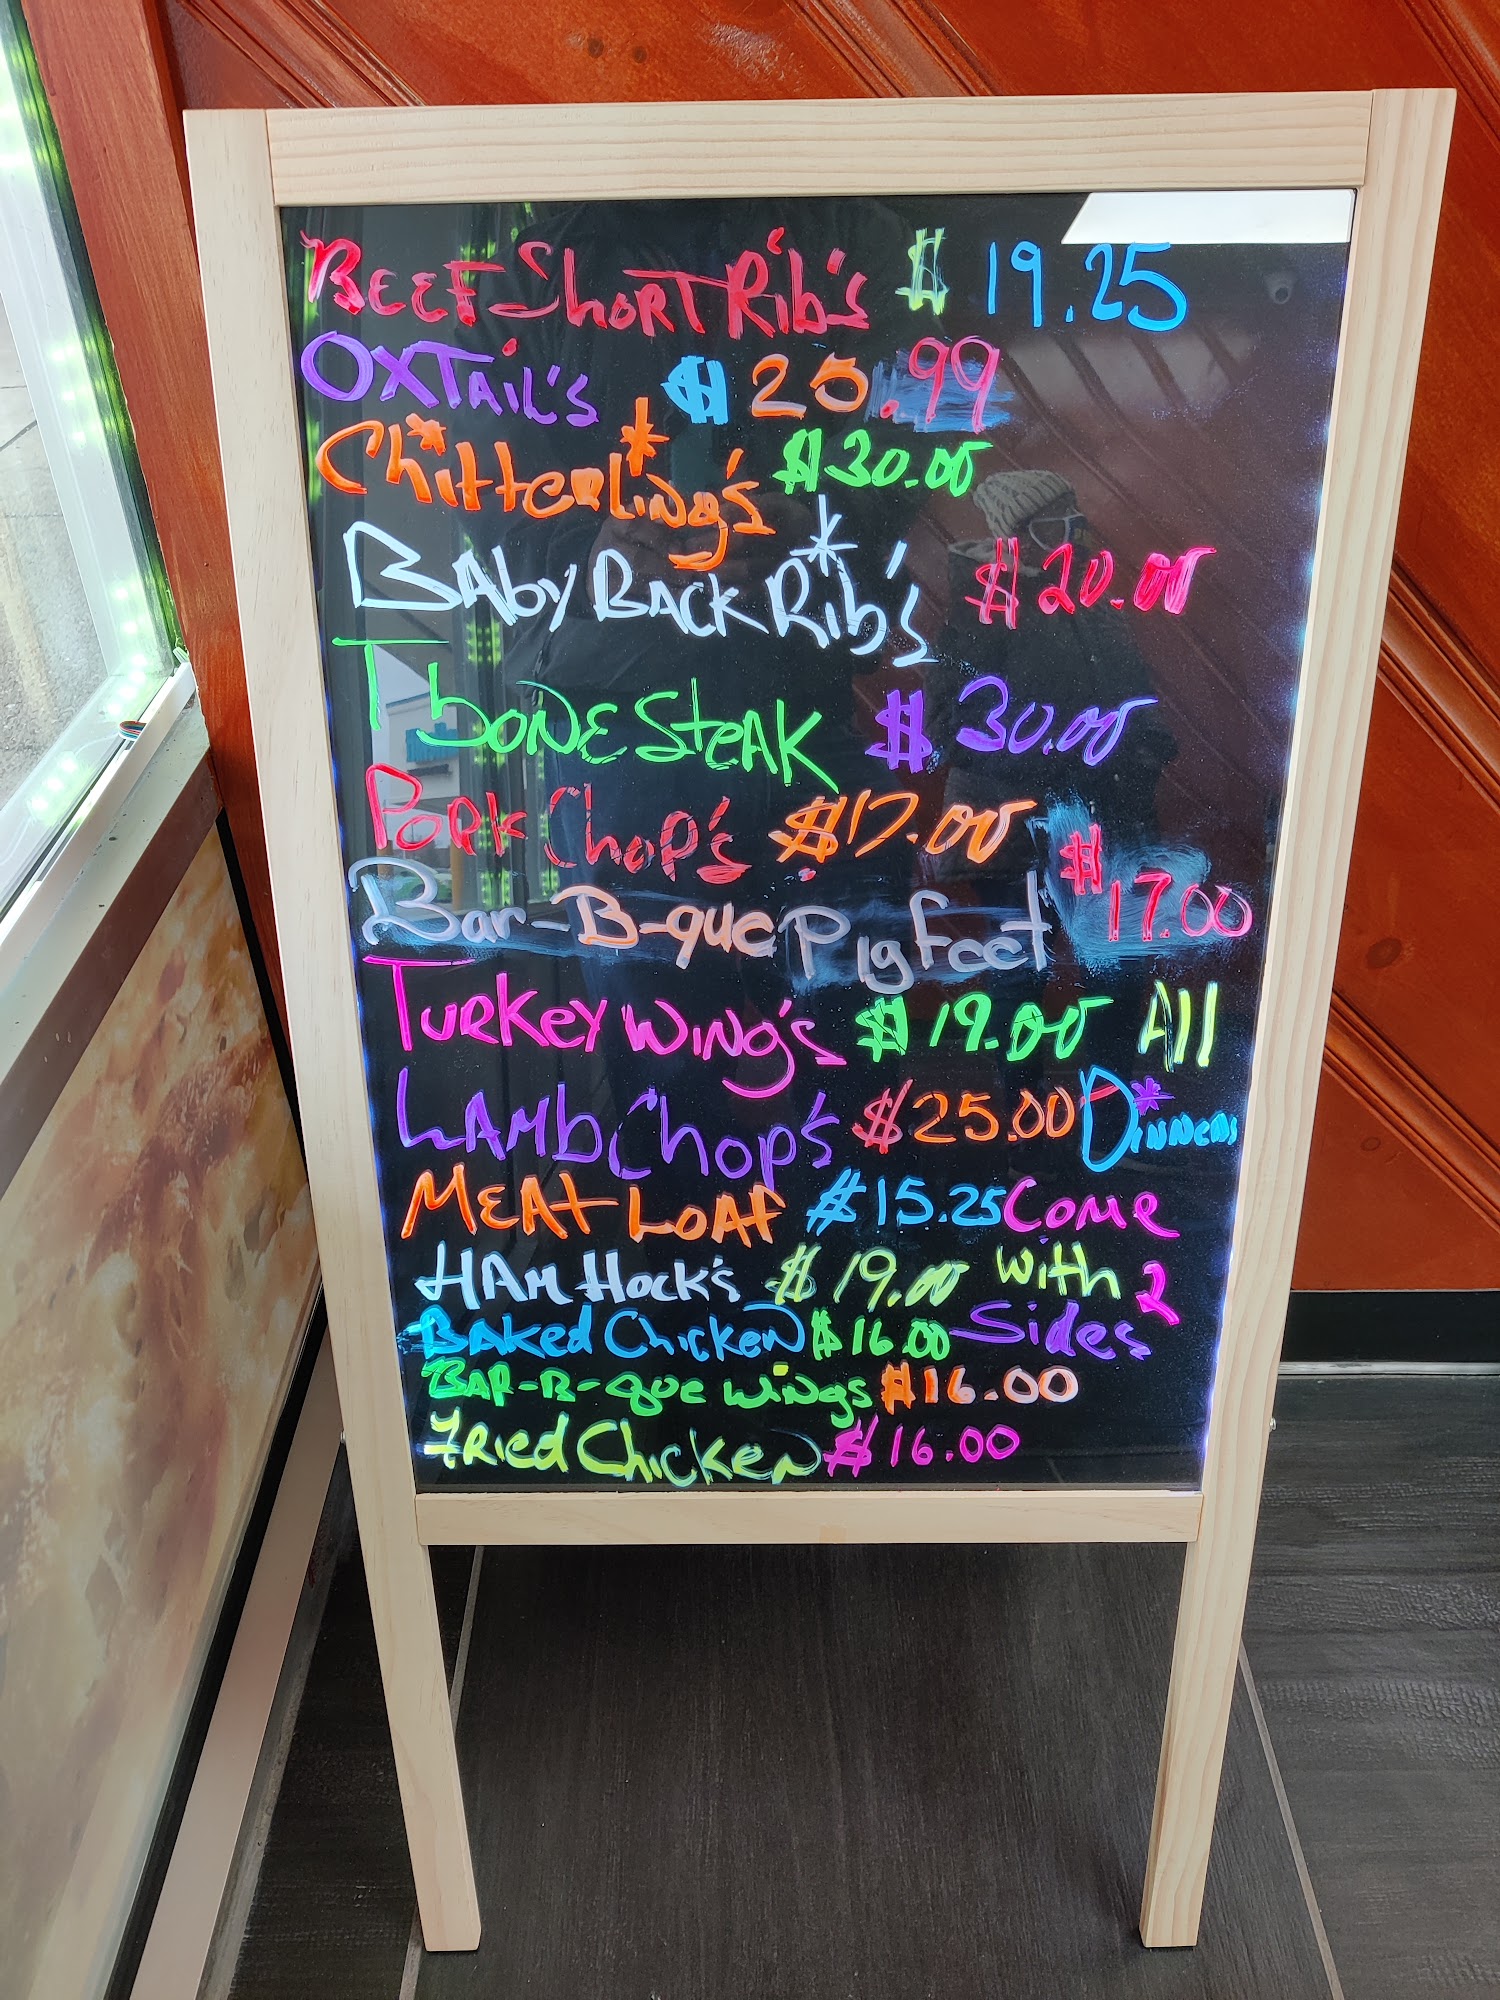 Beef Short Rib's $ 19.25
Oxtail's $ 20.99
Chitterling's $30.00
Baby Back Rib's $20.00
T bone Steak $30.00
Pork Chop's $17.00
Bar-B-que Pig Feet $17.00
Turkey Wing's $19.00 All
Lamb Chop's $25.00 Dinners
Meat Loaf $15.25 Come
Ham Hock's $19.00 with 2
Baked Chicken $16.00 Sides
Bar-B-que wings $16.00
Fried Chicken $16.00